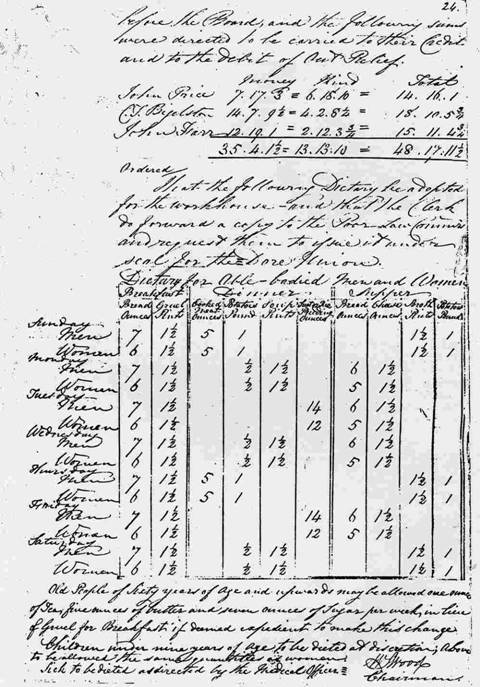 24.
before the Board, and the following sums
were directed to be carried to their Credit
and to the debit of Out Relief.
Money Kind Total
John Price 7.17.3 = 6.18.10 = 14.16.1
14.7.9½ = 4.2.8¼ = 18.10.5¾
John Farr 12.19.1 = 2.12.3¾ = 15.11.4¾
35.4.1½ = 13.13.10 = 48.17.11½
Ordered
That the following Dietary be adopted
for the workhouse and that the Clerk
do forward a copy to the Poor Law Commrs
and request them to issue it under
seal for the Dore Union.
Dietary for Able-bodied Men and Women
Breakfast Dinner Supper
Bread Ounces Gruel Pints Cooked Meat Ounces Potatoes Pound Soup Pints Suet or Rice Pudding Ounces Bread Ounces Cheese Ounces Broth Pints Potatoes Pounds
Sunday
Men 7 1½ 5 1 1½ 1
Women 6 1½ 5 1 1½ 1
Monday
Men 7 1½ ½ 1½ 6 1½
Women 6 1½ ½ 1½ 5 1½
Tuesday
Men 7 1½ 14 6 1½
Women 6 1½ 12 5 1½
Wednesday
Men 7 1½ ½ 1½ 6 1½
Women 6 1½ ½ 1½ 5 1½
Thursday
Men 7 1½ 5 1 1½ 1
Women 6 1½ 5 1 1½ 1
Friday
Men 7 1½ 14 6 1½
Woman 6 1½ 12 5 1½
Saturday
Men 7 1½ ½ 1½ 1½ 1
Women 6 1½ ½ 1½ 1½ 1
Old People of Sixty years of Age and upwards may be allowed one ounce
of Tea, five ounces of butter and seven ounces of Sugar per week, in lieu
of Gruel for Breakfast if deemed expedient to make this change
Children under nine years of age to be dieted at discretion; above
to be allowed the same quantities as women
Sick to be dieted as directed by the Medical Officer
Wood
Chairman